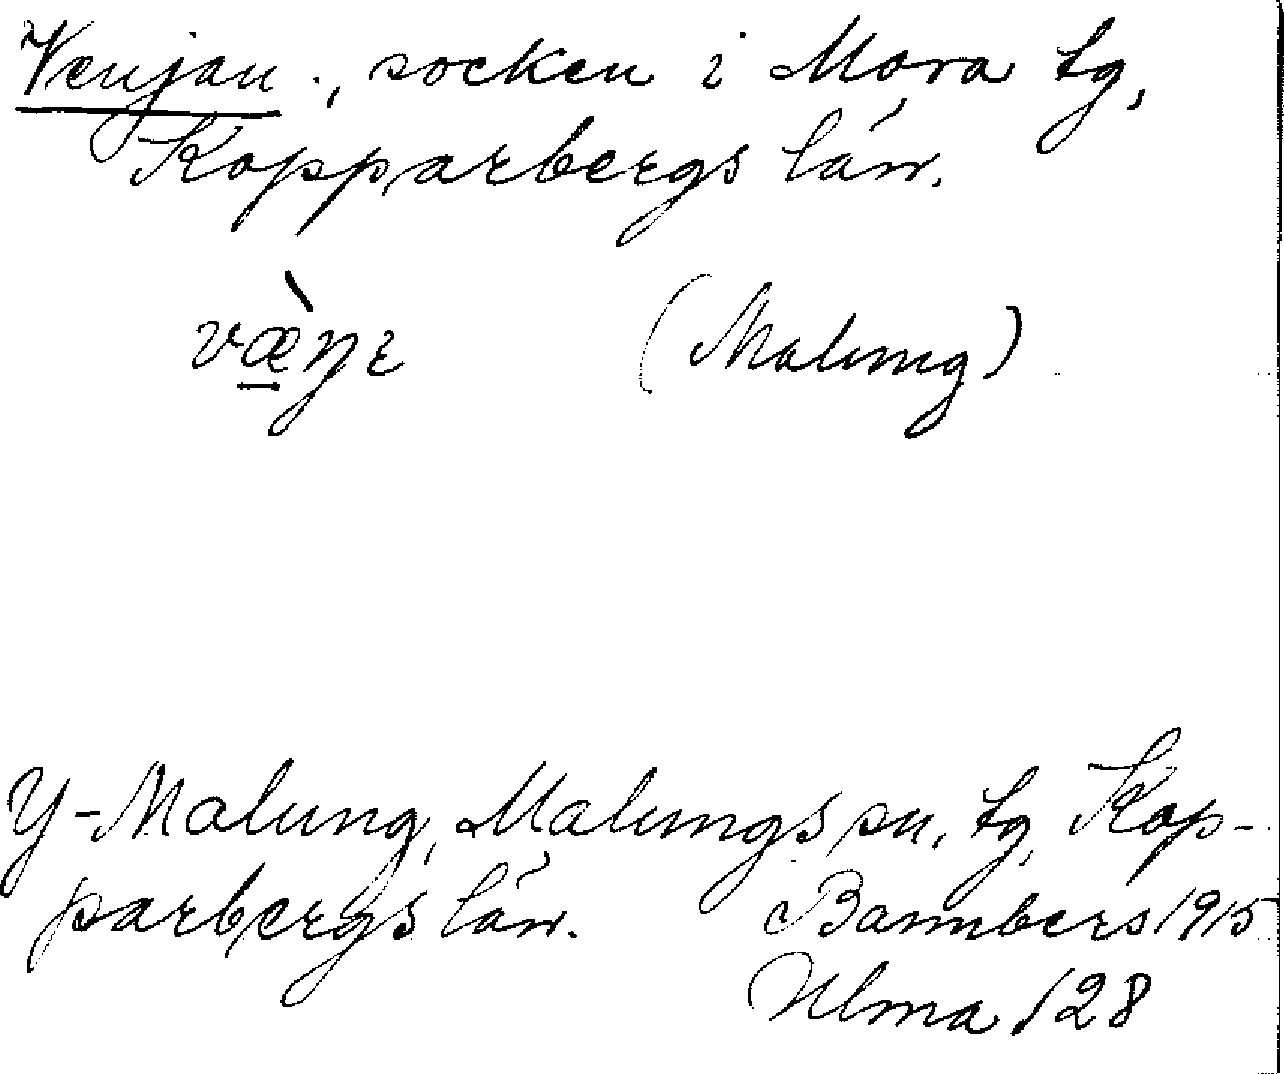 Venjan., socken i Mora tg,
Kopparbergs län.
væ̱̀ŋɛ (Malung)
Y-Malung, Malungs sn, tg, Kop-
parbergs län. Bannbers 1915
Ulma 128